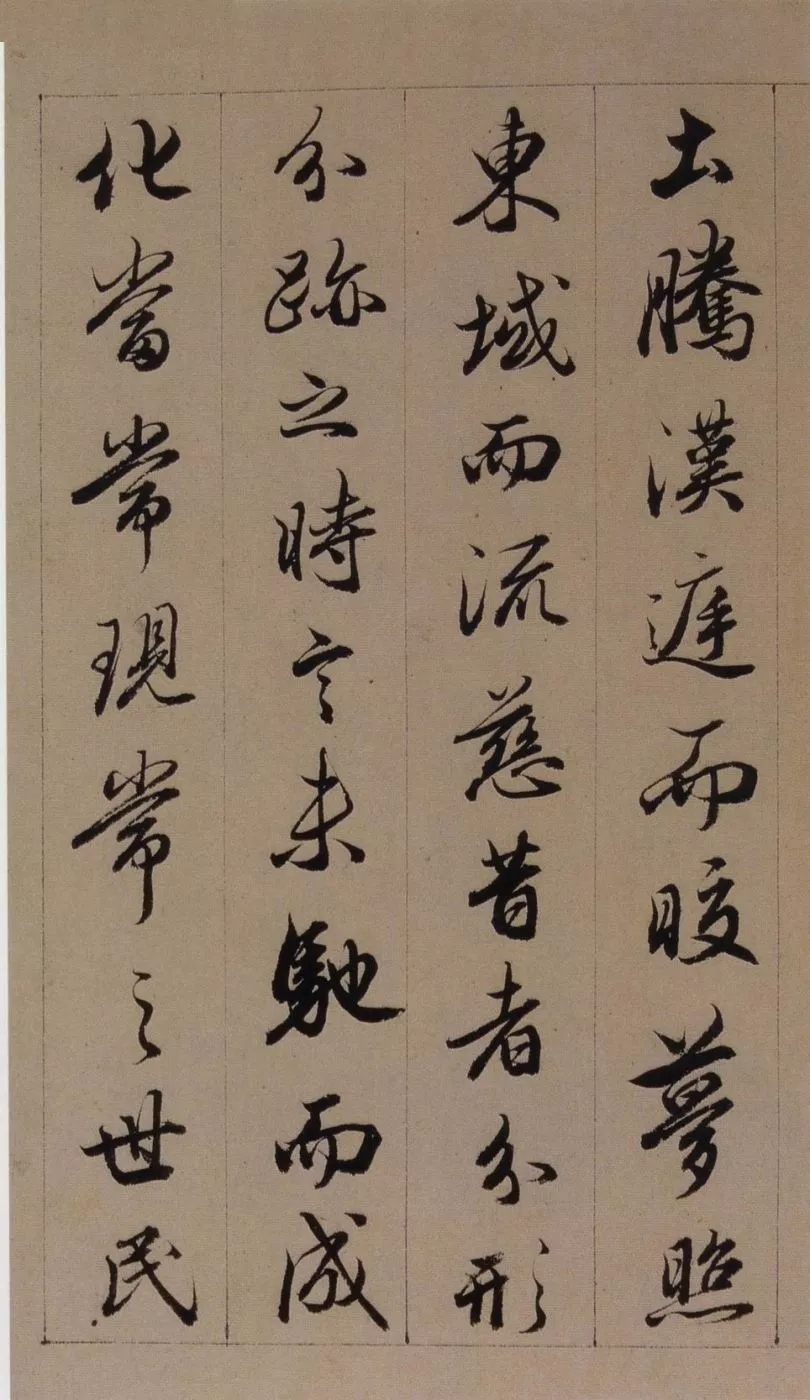 土騰漢逓而晈夢照
東域而流慈昔者分形
分跡之時言未馳而成
化當常現常之世民